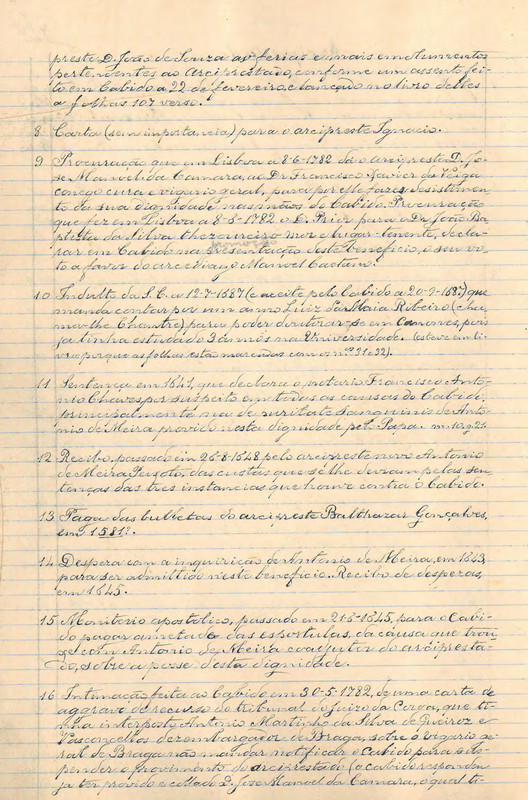 preste D. João de Souza as ferias e mais emolumentos
pertencentes ao Arciprestado, conforme um assento fei-
to em Cabido a 22 de fevereiro, e lançado no livro delles
a folhas 107 verso.
8 Carta (sem importancia) para o arcipreste Ignacio.
9 Procuração que em Lisboa a 8-6-1782 dá o arcipreste D. Jo-
sé Manoel da Camara, ao Dr. Francisco Xavier da Veiga
conego cura e vigario geral, para por elle fazer desistimen-
to da sua dignidade nas mãos do Cabido. Procuração
que fez em Lisboa a 8-6-1782 o D. Prior para o Dr. João Ba-
ptista da Silva thezoureiro mór e lugar-tenente, decla-
rar em Cabido na apresentação deste beneficio, o seu vo-
to a favor do arcediago Manoel Caetano.
10 Indulto da S. C. a 12-7-1687 (e aceite pelo Cabido a 20-9-1687) que
manda contar por um anno Luiz da Maia Ribeiro (cha-
ma-lhe Chantre) para poder doutorar-se em Canones, pois
já tinha estudado 3 annos na Universidade. (esteve em li-
vro porque as folhas estão marcadas com os nos 31 e 32).
11 Sentença em 1641, que declara o notario Francisco Anto-
nio Chaves por suspeito em todas as causas do Cabido,
principalmente na de puritate sanguinis de Anto-
nio de Meira provido nesta dignidade pelo Papa.
12 Recibo, passado em 26-8-1648 pelo arcipreste novo Antonio
de Meira Peixoto, das custas que se lhe deviam pelas sen-
tenças das tres instancias que houve contra o Cabido.
13 Paga das bulhetas do arcipreste Balthazar Gonçalves,
em 1581?.
14 Despeza com a inquirição de Antonio de Meira, em 1643,
para ser admittido neste beneficio. Recibo de despezas,
em 1645.
15 Monitorio apostolico, passado em 21-6-1645, para o Cabi-
do pagar ametade das esportulas, da causa que trou-
xe com Antonio de Meira coadjutor do arcipresta-
do, sobre a posse desta dignidade.
16 Intimação feita ao Cabido em 30-5-1782, de uma carta de
aggravo de recurso do tribunal do juizo da Coroa, que ti-
nha interposto Antonio Martinho da Silva de Queiroz e
Vasconcellos dezembargador de Braga, sobre o vigario ge-
ral de Braga não mandar notificar o Cabido para sus-
pender o provimento do arciprestado (o cabido respondeu
já ter provido e collado D. José Manoel da Camara, o qual ti-